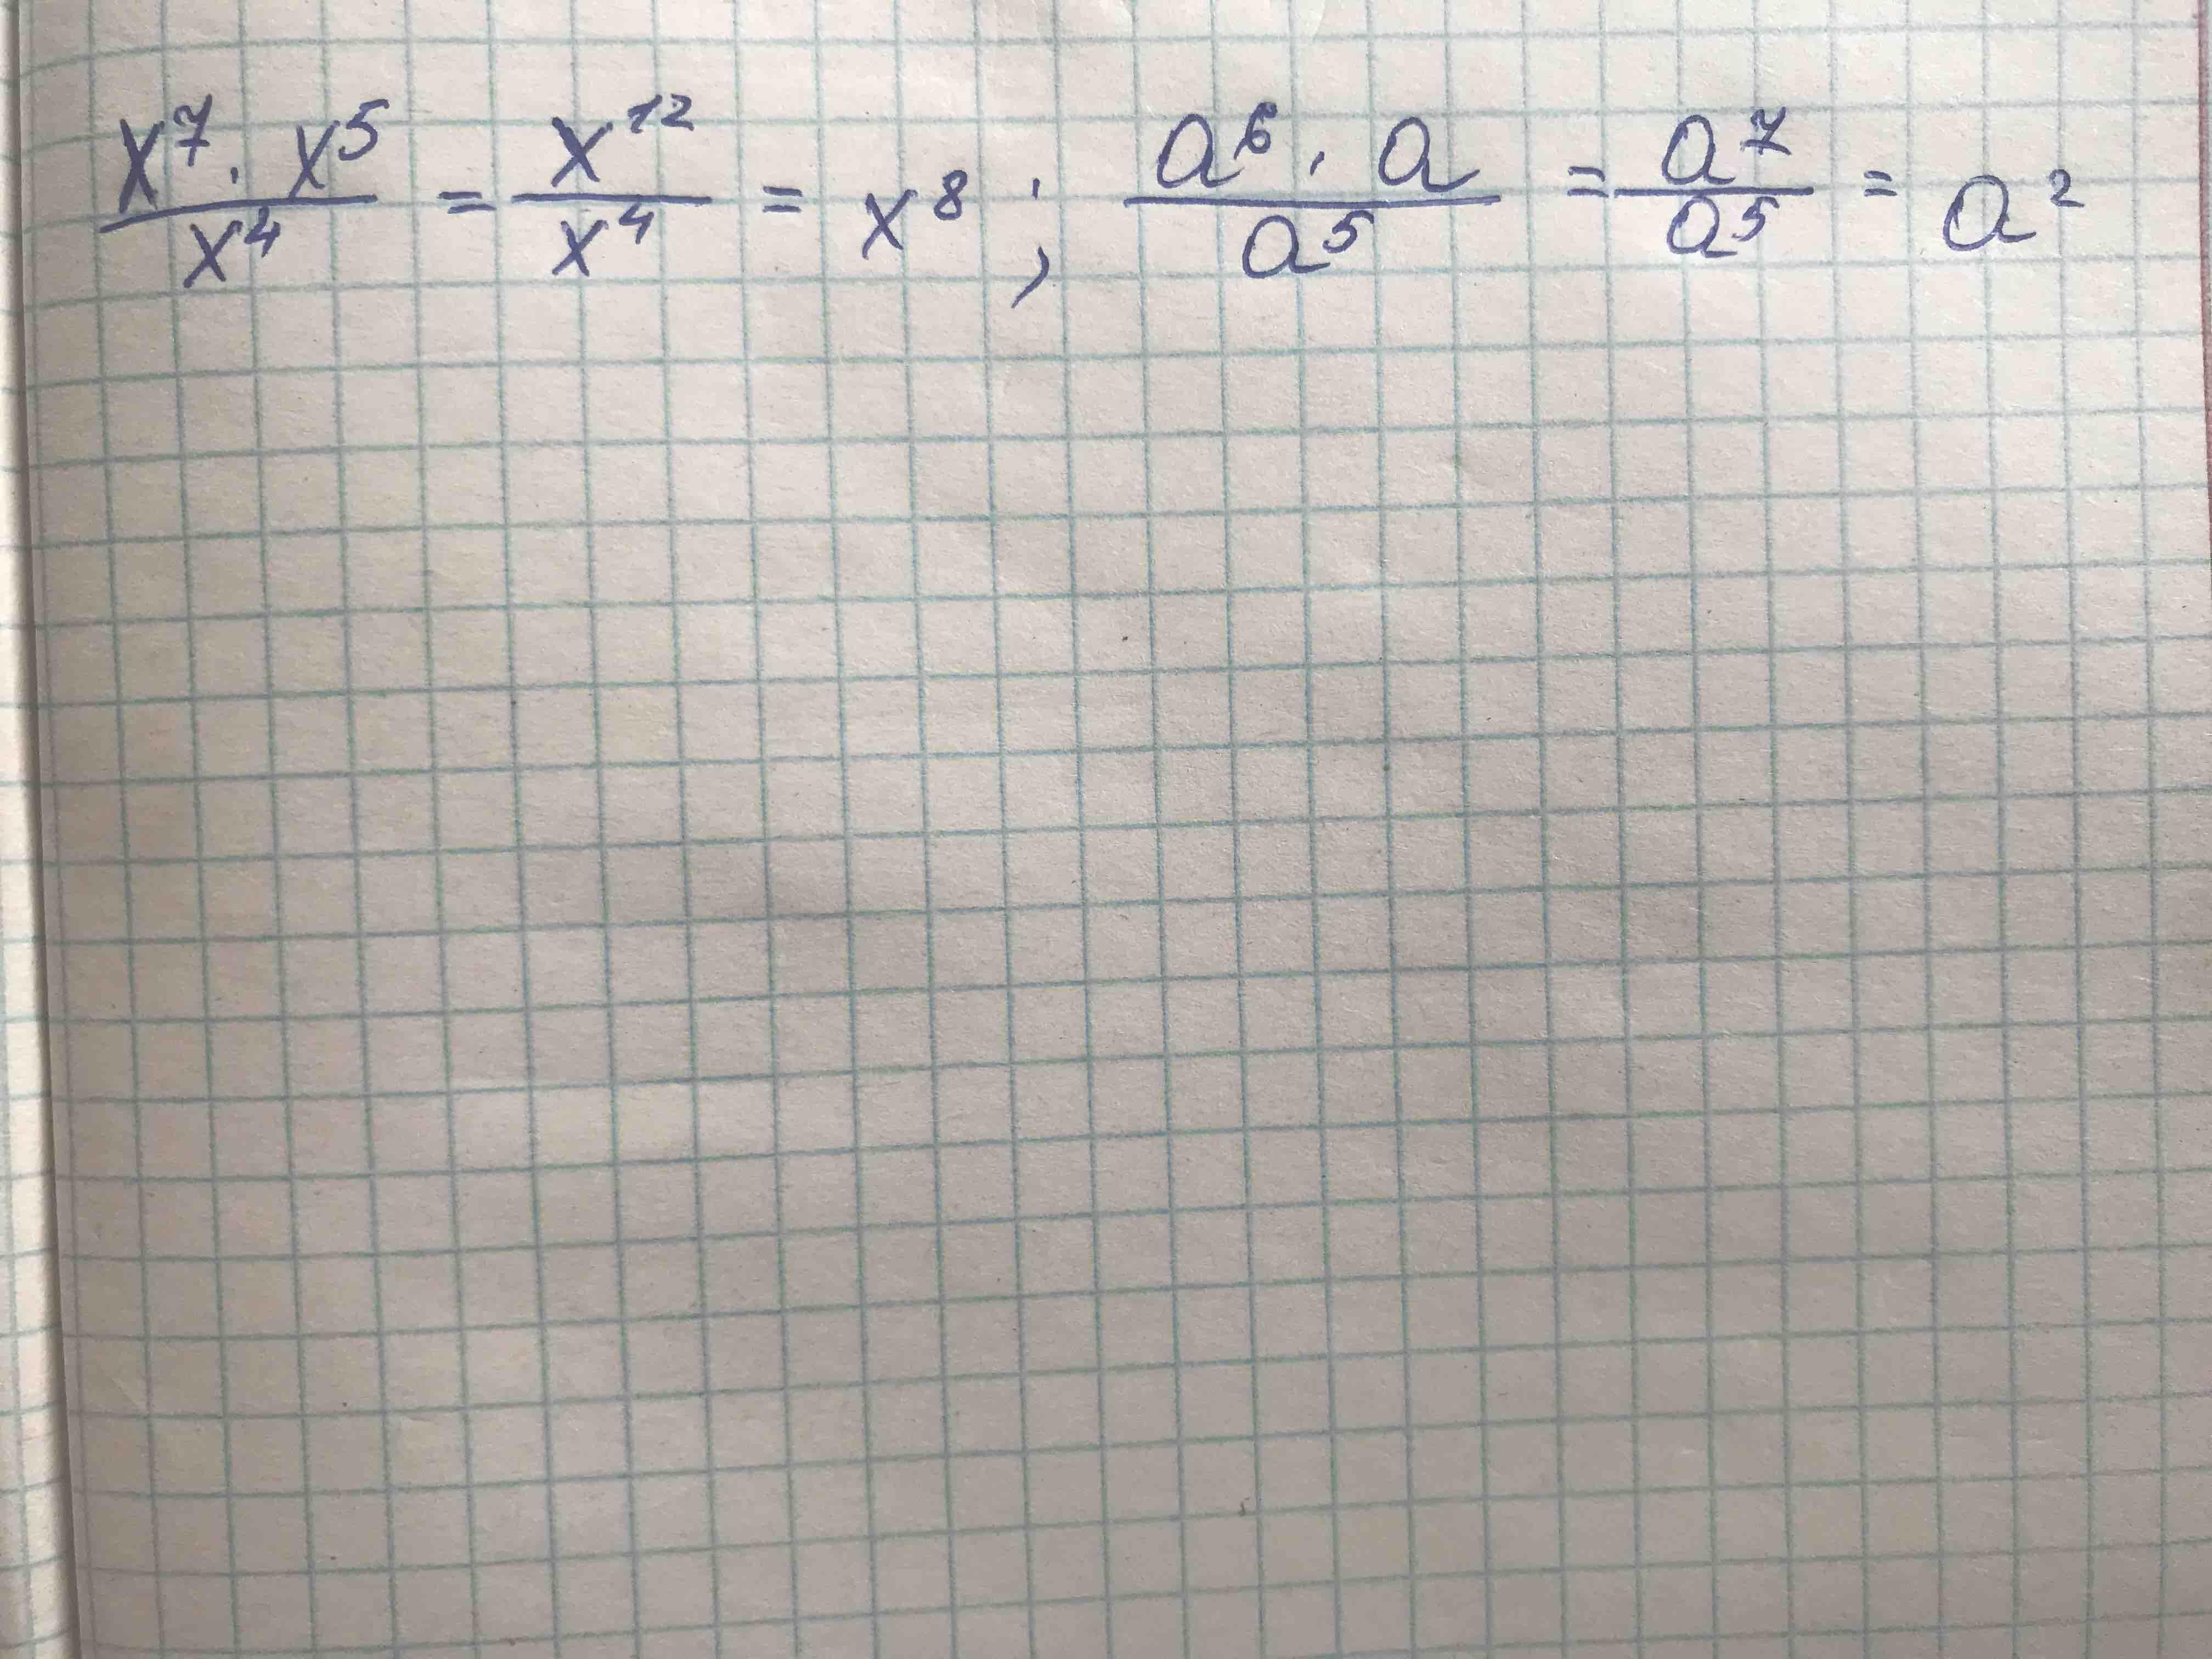 x⁷ · x⁵ / x⁴ = x¹² / x⁴ = x⁸ ; a⁶ · a / a⁵ = a⁷ / a⁵ = a²